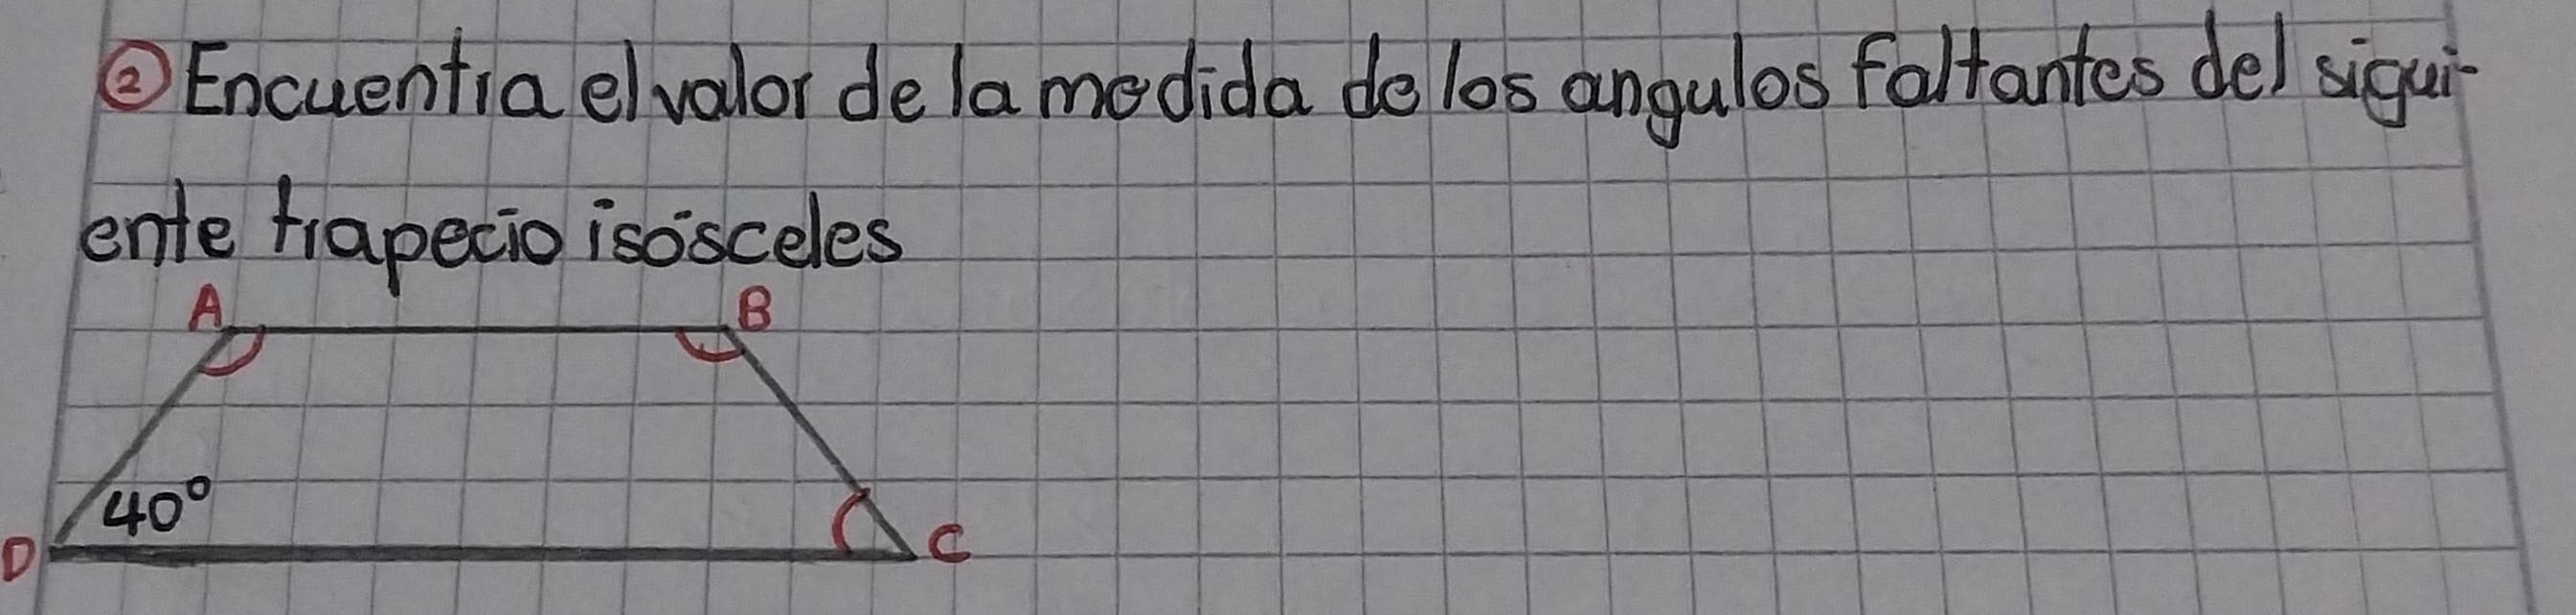 ② Encuentra el valor de la medida de los angulos faltantes del sigui-
ente trapecio isósceles
A B
40°
D C